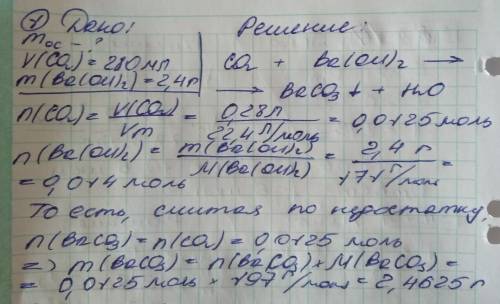 ① Дано: Решение:
mос - ?
V(CO₂) = 280 мл CO₂ + Ba(OH)₂ →
m(Ba(OH)₂) = 2,4 г → BaCO₃↓ + H₂O
n(CO₂) = V(CO₂)/Vm = 0,28 л/22,4 л/моль = 0,0125 моль
n(Ba(OH)₂) = m(Ba(OH)₂)/M(Ba(OH)₂) = 2,4 г/171 г/моль =
= 0,014 моль
То есть, считая по недостатку,
n(BaCO₃) = n(CO₂) = 0,0125 моль
=> m(BaCO₃) = n(BaCO₃) * M(BaCO₃) =
= 0,0125 моль * 197 г/моль = 2,4625 г